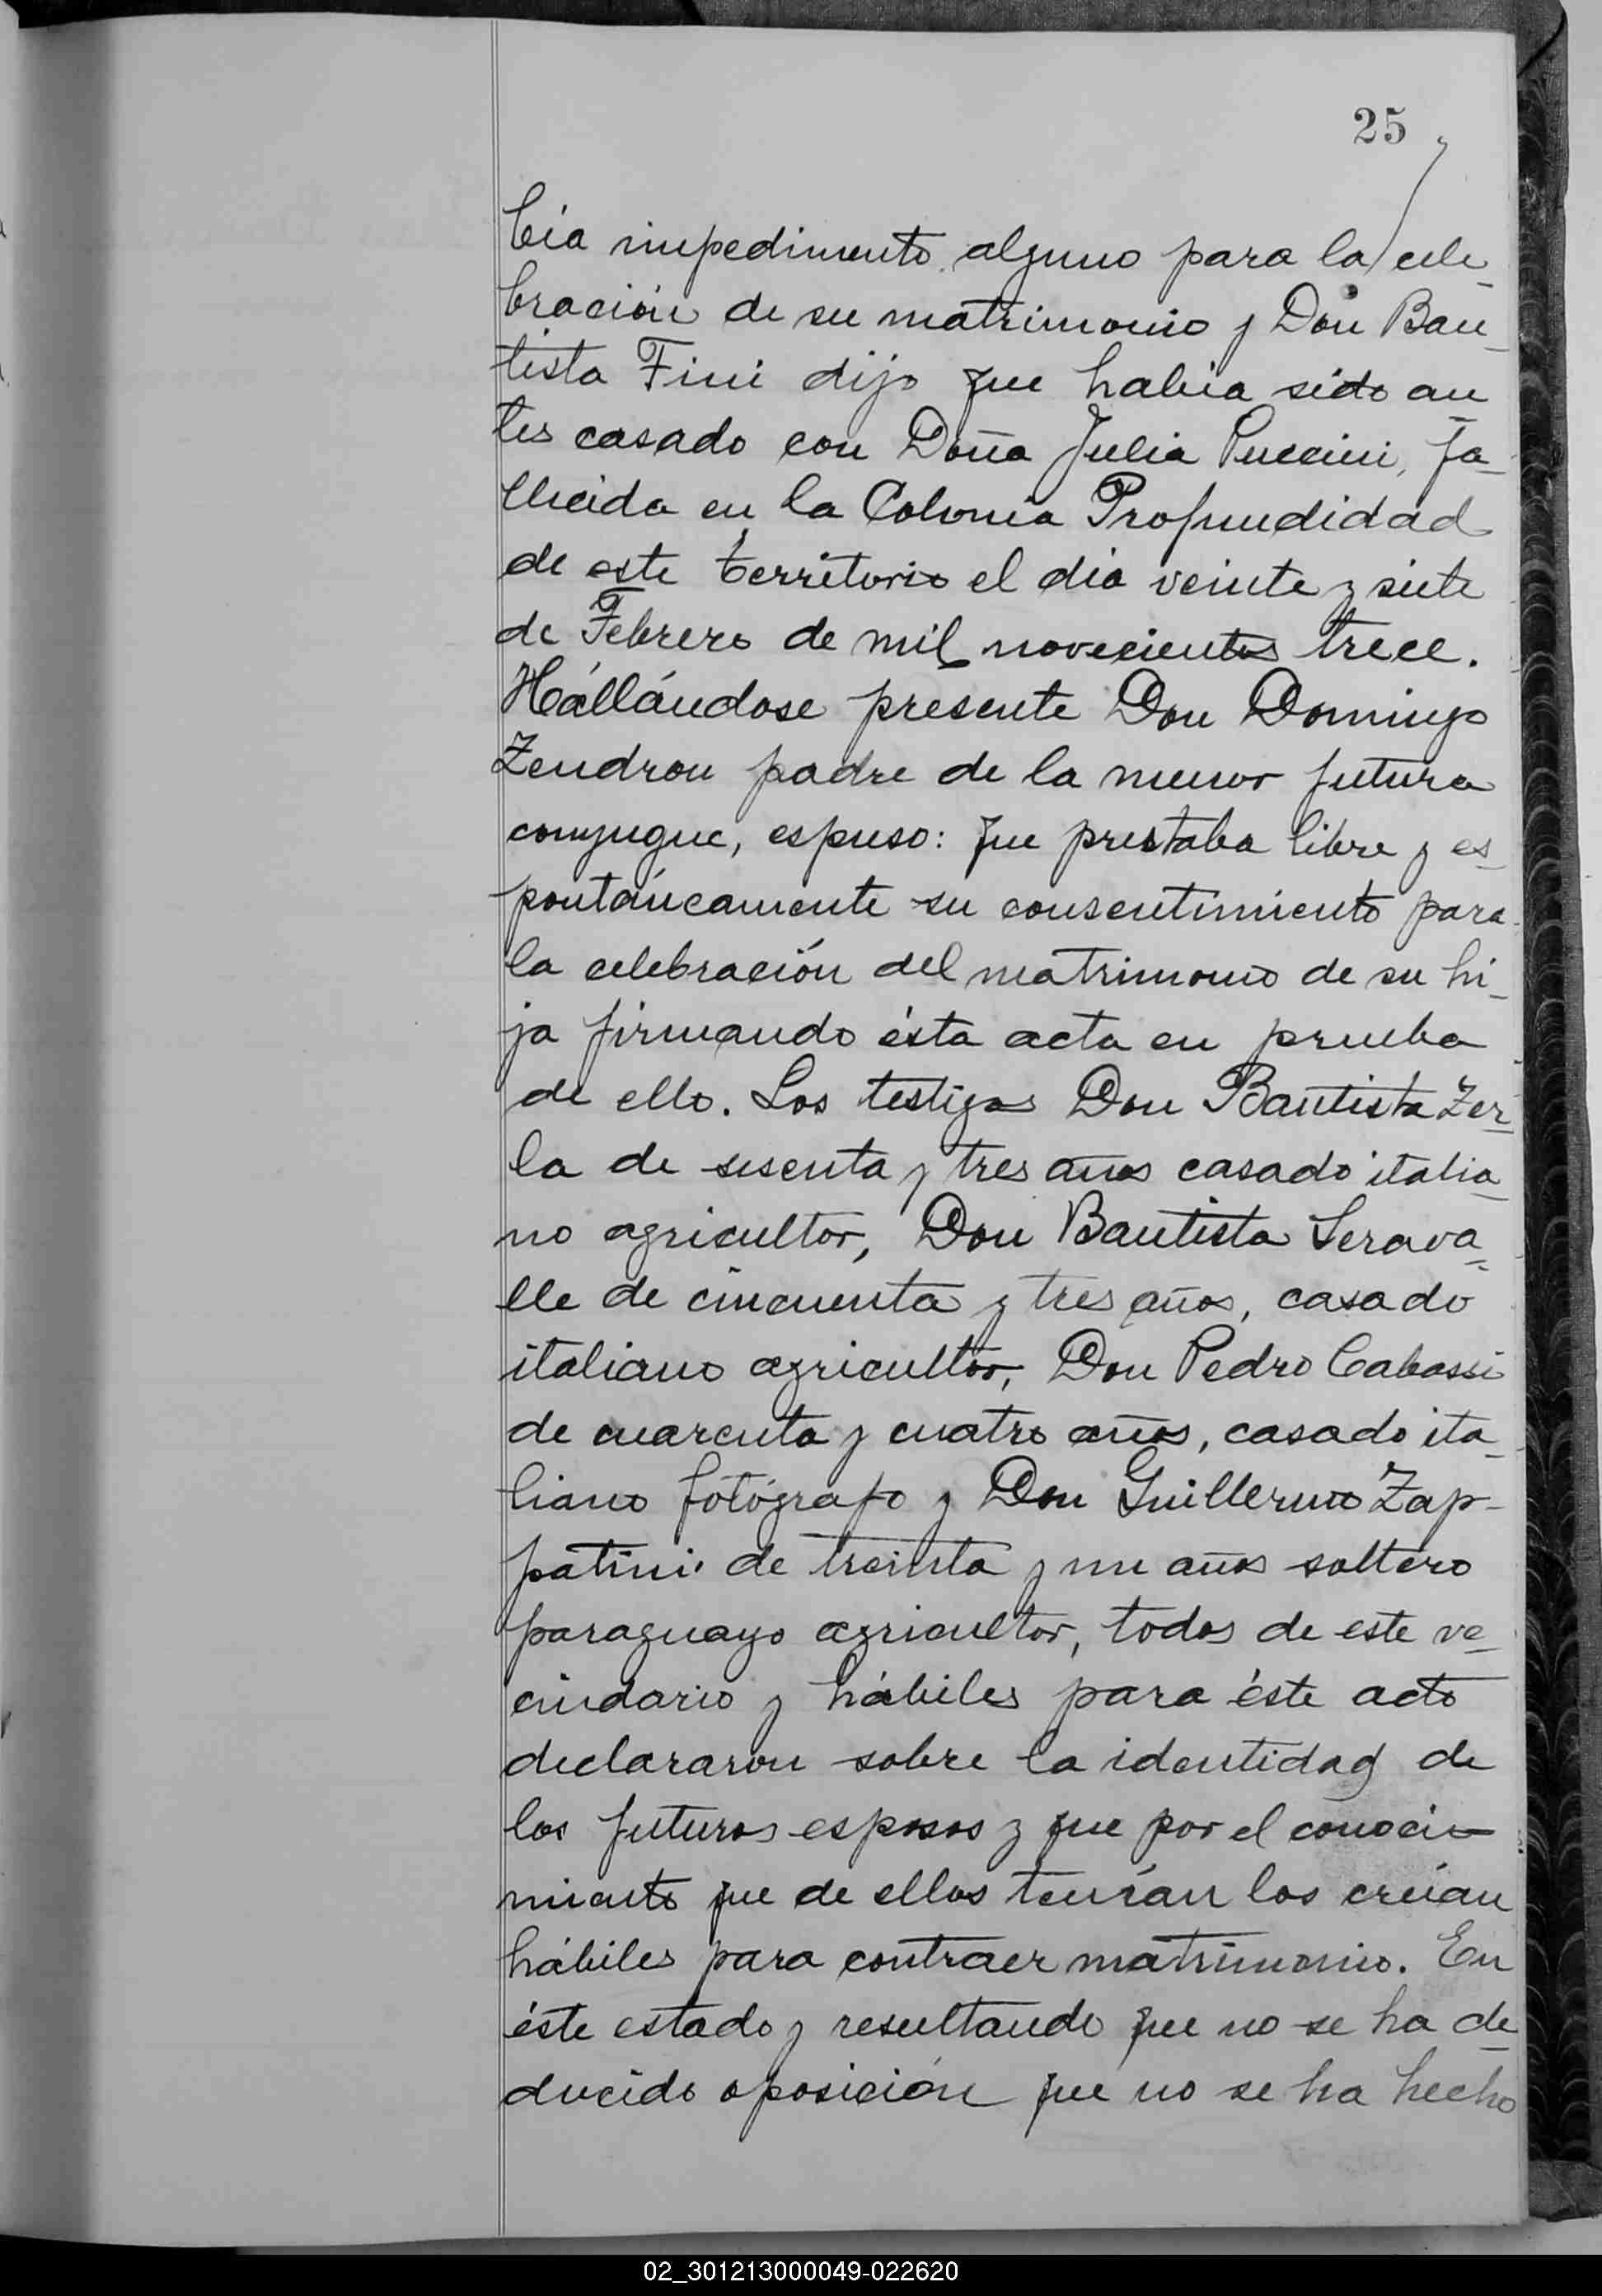 25
bía impedimento alguno para la cele_
bración de su matrimonio y Don Bau_
tista Fini dijo que habia sido an_
tes casado con Doña Julia Puccini, fa_
llecida en la Colonia Profundidad
de este territorio el dia veinte y siete
de Febrero de mil novecientos trece.
Hállándose presente Don Domingo
Zendron padre de la menor futura
conyugue, espuso: que prestaba libre y es_
pontáneamente su consentimiento para
la celebración del matrimonio de su hi_
ja firmando ésta acta en prueba
de ello. Los testigos Don Bautista Zer_
la de sesenta y tres años casado italia_
no agricultor, Don Bautista Serava_
lle de cincuenta y tres años, casado
italiano agricultor, Don Pedro Cabassi
de cuarenta y cuatro años, casado ita_
liano fotógrafo y Don Guillermo Zap-
patini de treinta y un años soltero
paraguayo agricultor, todos de este ve_
cindario y hábiles para éste acto
declararon sobre la identidad de
los futuros esposos y que por el conoci-
miento que de ellos tenían los creían
hábiles para contraer matrimonio. En
éste estado y resultando que no se ha de_
ducido oposición que no se ha hecho
02_301213000049-022620